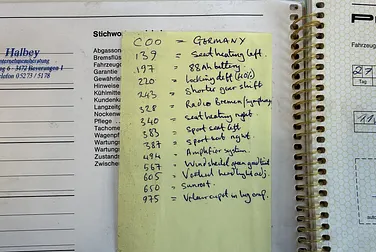 Halbey
3472 Beverungen 1
Telefon 05273/5178
Stichwo
Abgasson
Bremsflüs
Fahrzeug
Garantie
Gewährle
Hinweise
Kühlmitte
Kundenk
Langzeit
Nockenw
Pflege
Tachome
Wagenpf
Wartung
Wartung
Wartungs
Zentrals
Zwische
C00 = GERMANY
139 = Seat heating left.
197 = 88Ah battery.
220 = locking diff (40%)
243 = shorter gear shift
328 = Radio Bremen
340 = seat heating right.
383 = sport seat left
387 = sport seat right.
494 = Amplifier system.
567 = Windshield green
605 = Vertical headlight adj.
650 = Sunroof.
975 = Velour carpet in lug comp.
P
Fahrzeug
Tag